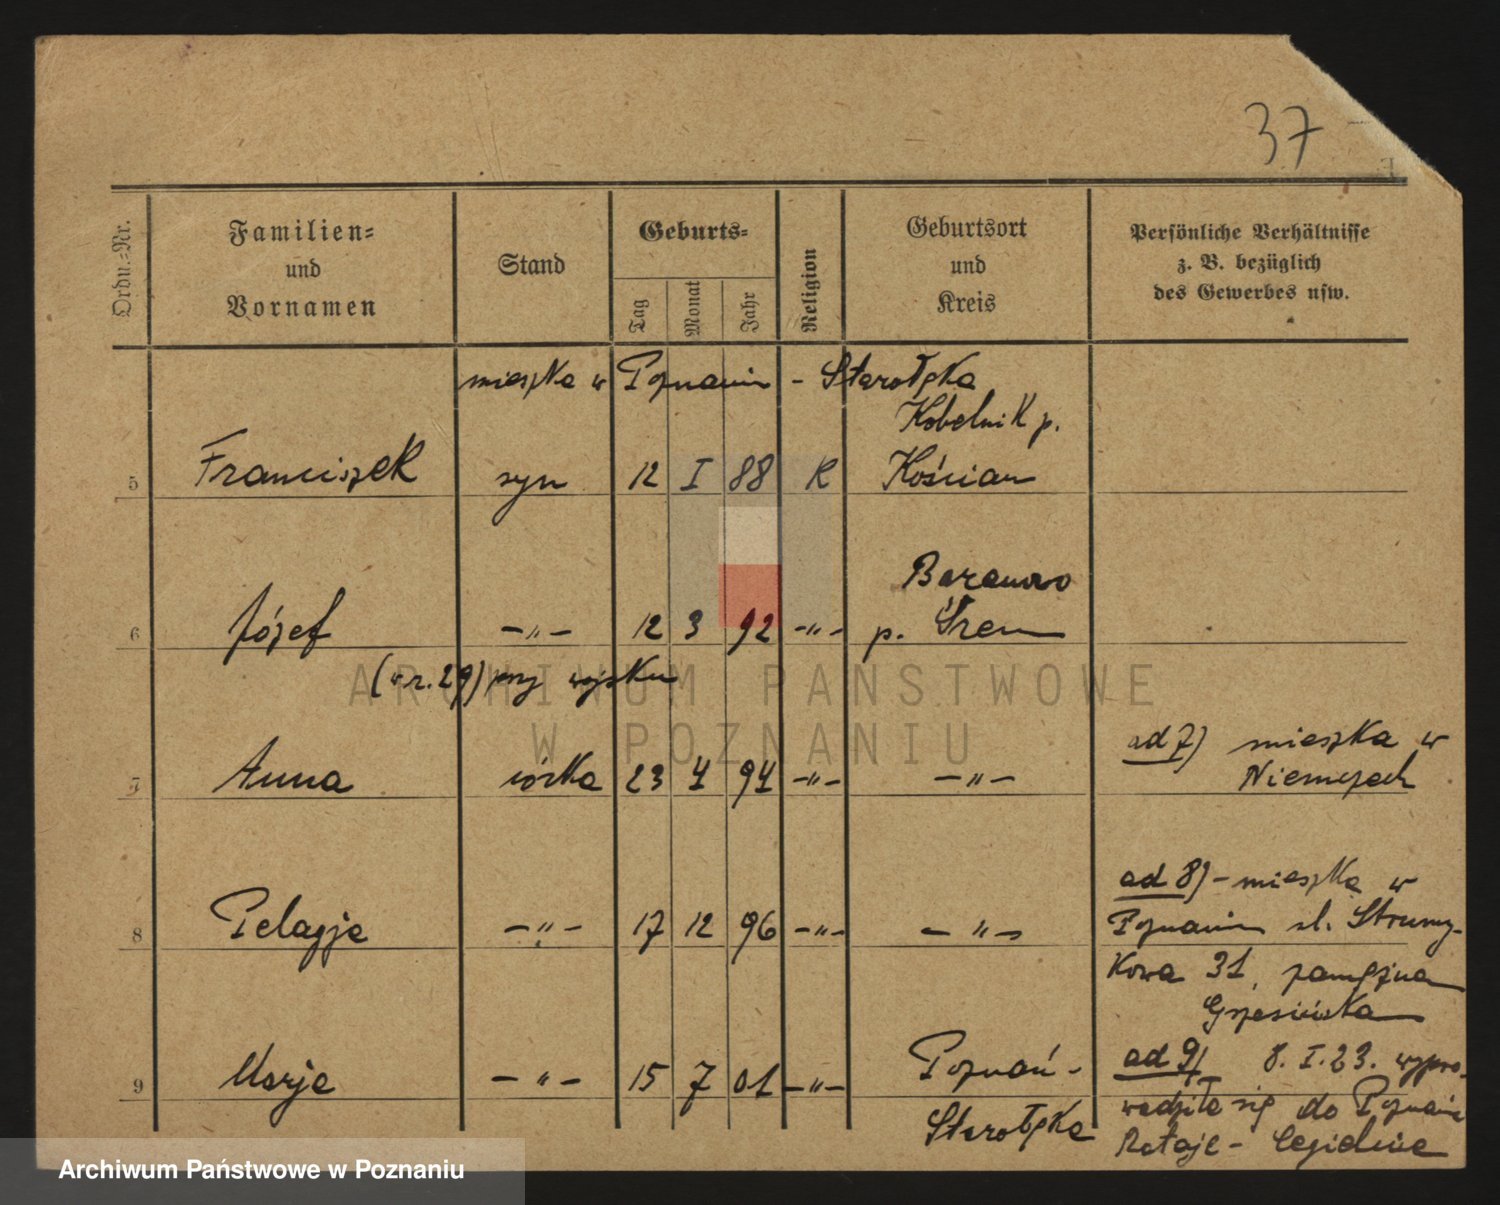 37
Ordn.-Nr.
Familien-
und
Vornamen
Stand
Geburts-
Tag
Monat
Jahr
Religion
Geburtsort
und
Kreis
Persönliche Verhältnisse
z. B. bezüglich
des Gewerbes usw.
mieszka w Poznaniu - Starołęka
Kobelnik p.
5 Franciszek syn 12 I 88 K Kościan
Baranowo
6 Józef -„- 12 3 92 -„- p. Śrem
(w r. 29) przy wojsku
ad 7) mieszka w
7 Anna córka 23 4 94 -„- -„- Niemczech
ad 8) - mieszka w
8 Pelagja -„- 17 12 96 -„- -„- Poznaniu ul. Strumy-
kowa 31, zamężna
Grzesińska
9 Marja -„- 15 7 01 -„- Poznań - ad 9) 8. I. 23. wypro-
Starołęka wadziła się do Poznania
Rataje - Cegielnia
ARCHIWUM PAŃSTWOWE
W POZNANIU
Archiwum Państwowe w Poznaniu